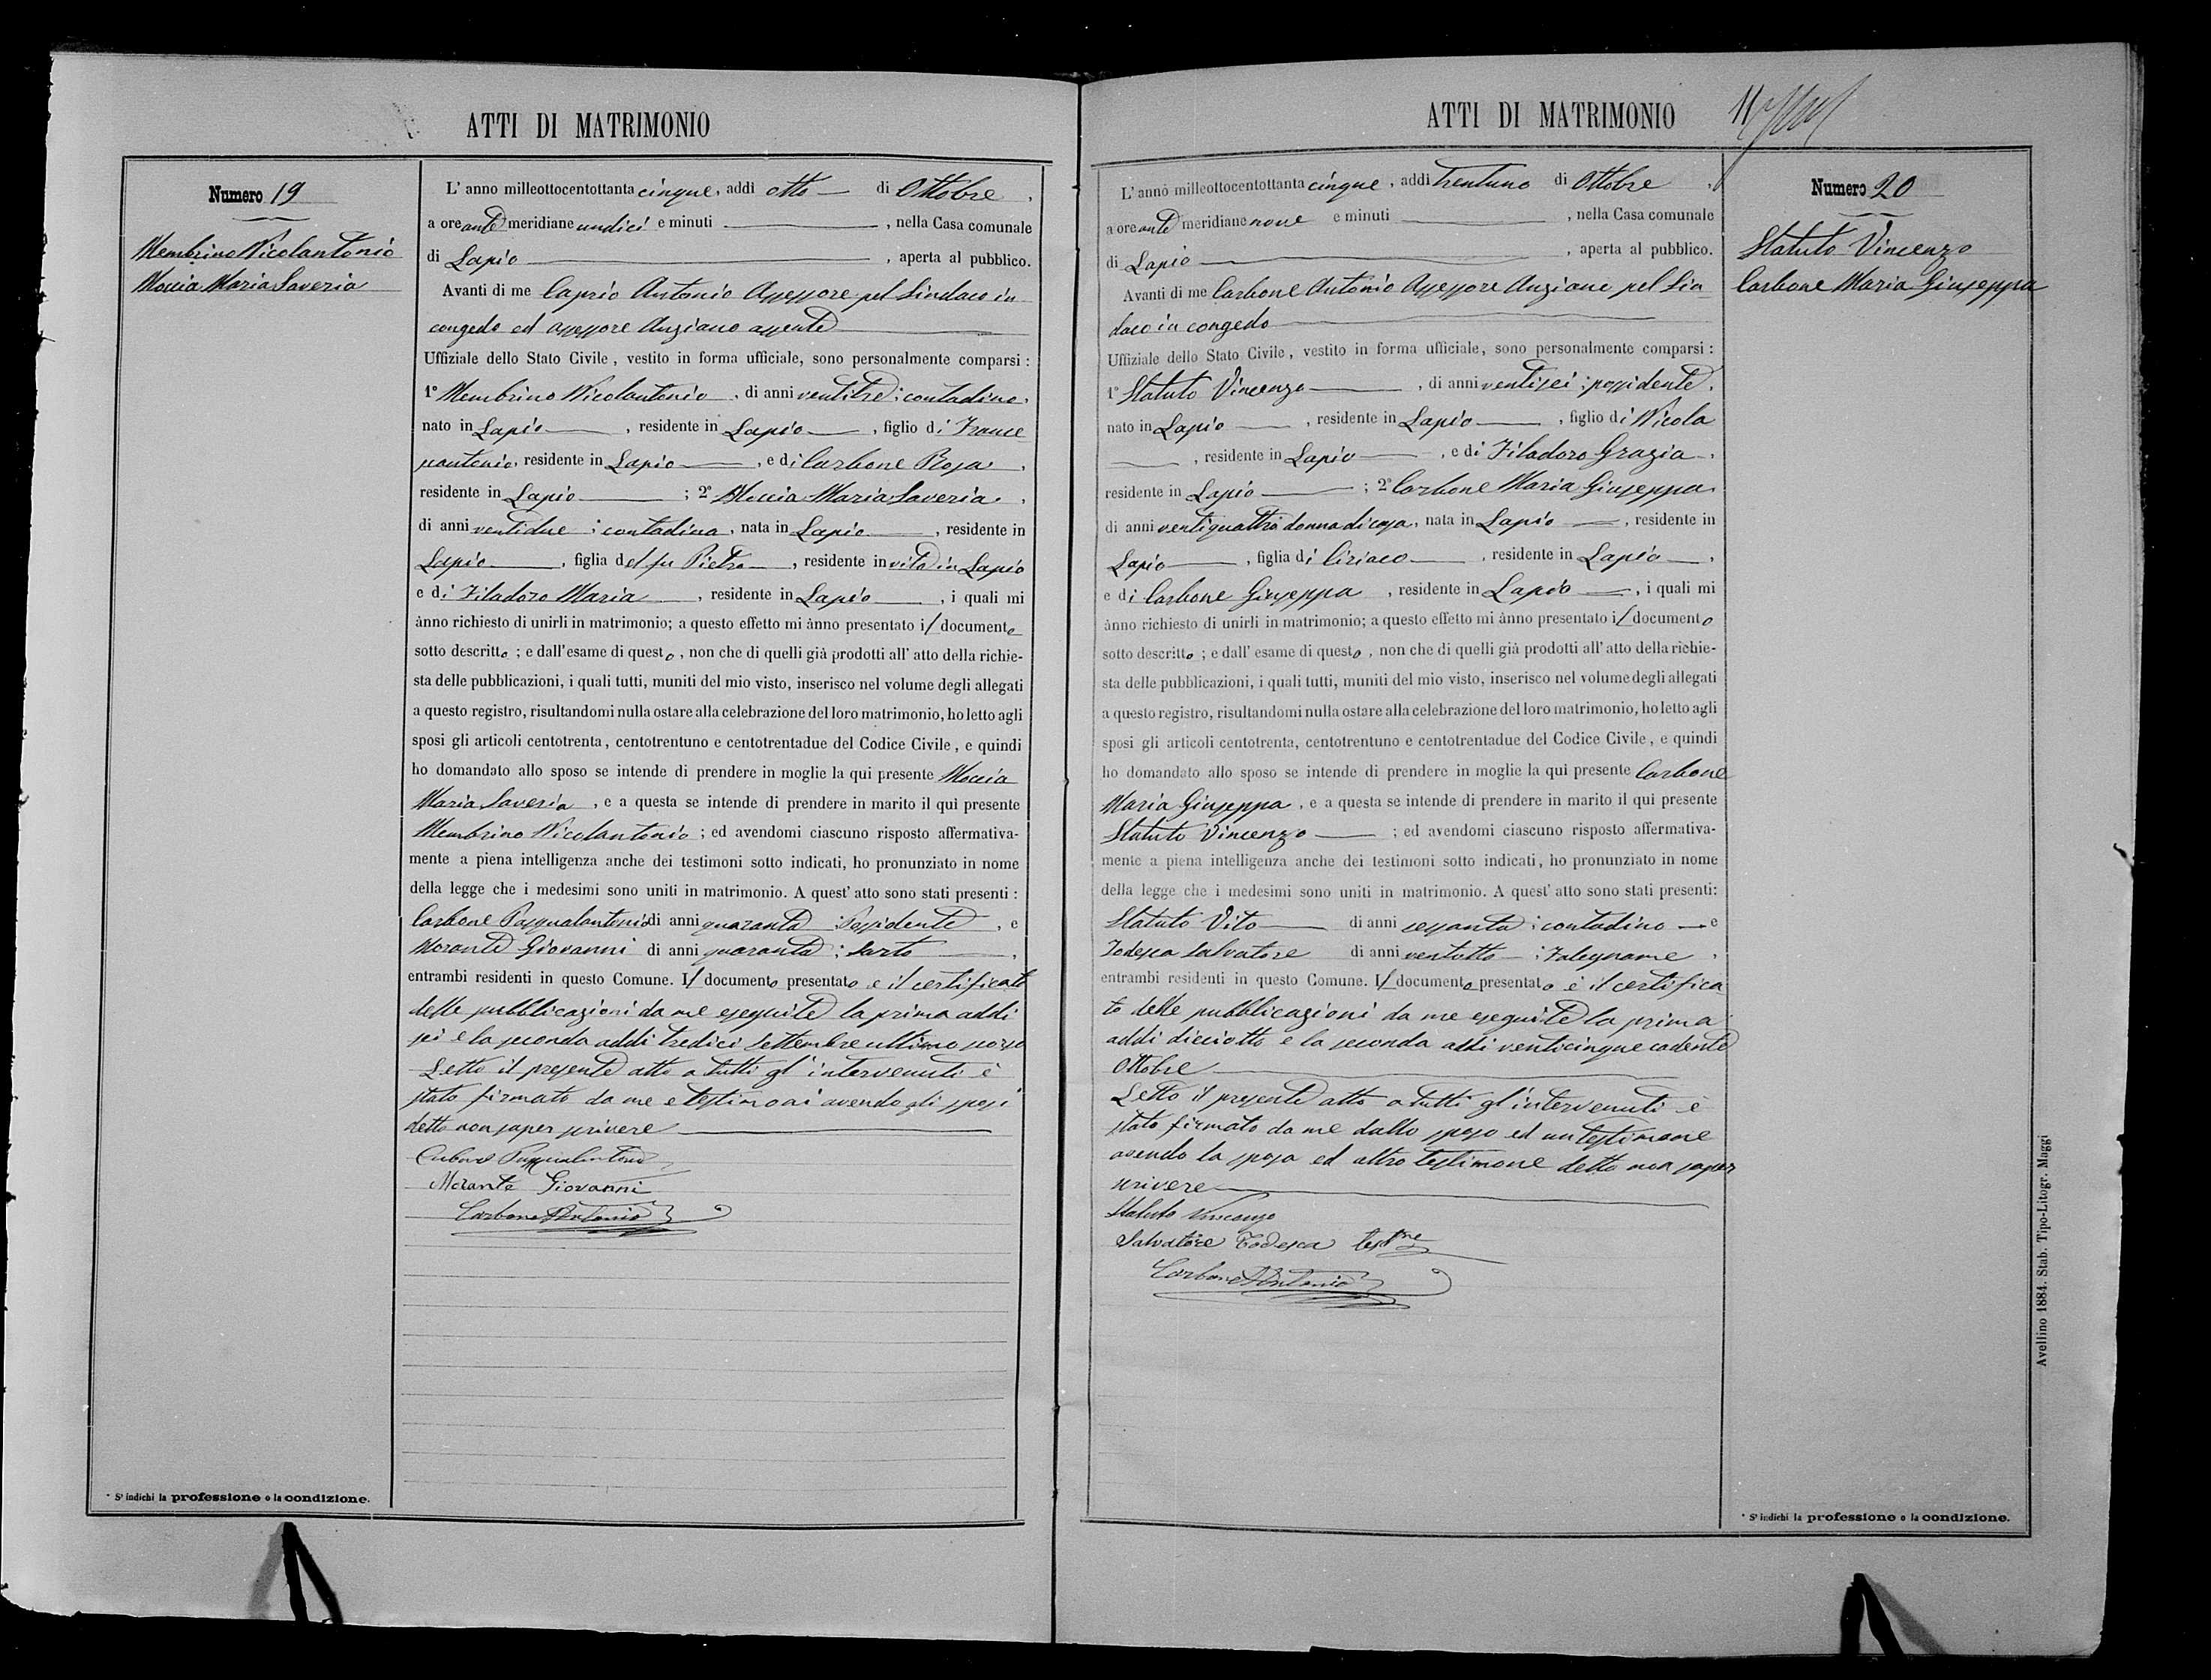 ATTI DI MATRIMONIO
Numero 19
Membrino Nicolantonio
Moccia Maria Saveria
L' anno milleottocentottanta cinque, addì otto di Ottobre,
a ore ante meridiane undici e minuti , nella Casa comunale
di Lapio , aperta al pubblico.
Avanti di me Caprio Antonio Assessore pel Sindaco in
congedo ed assessore Anziano assente
Uffiziale dello Stato Civile, vestito in forma ufficiale, sono personalmente comparsi:
1° Membrino Nicolantonio, di anni ventitre; contadino,
nato in Lapio, residente in Lapio, figlio di France
scantonio, residente in Lapio, e di Carbone Rosa,
residente in Lapio; 2° Moccia Maria Saveria,
di anni ventidue; contadina, nata in Lapio, residente in
Lapio, figlia del fu Pietro, residente in vita in Lapio
e di Filadoro Maria, residente in Lapio, i quali mi
ànno richiesto di unirli in matrimonio; a questo effetto mi ànno presentato il documento
sotto descritto; e dall'esame di questo, non che di quelli già prodotti all' atto della richie-
sta delle pubblicazioni, i quali tutti, muniti del mio visto, inserisco nel volume degli allegati
a questo registro, risultandomi nulla ostare alla celebrazione del loro matrimonio, ho letto agli
sposi gli articoli centotrenta, centotrentuno e centotrentadue del Codice Civile, e quindi
ho domandato allo sposo se intende di prendere in moglie la qui presente Moccia
Maria Saveria, e a questa se intende di prendere in marito il qui presente
Membrino Nicolantonio; ed avendomi ciascuno risposto affermativa-
mente a piena intelligenza anche dei testimoni sotto indicati, ho pronunziato in nome
della legge che i medesimi sono uniti in matrimonio. A quest' atto sono stati presenti:
Carbone Pasqualantonio di anni quaranta; Possidente, e
Morante Giovanni di anni quaranta; Sarto,
entrambi residenti in questo Comune. Il documento presentato è il certificato
delle pubblicazioni da me eseguite la prima addi
sei e la seconda addi tredici Settembre ultimo scorso
Letto il presente atto a tutti gl'intervenuti è
stato firmato da me e testimoni avendo gli sposi
detto non saper scrivere
Carbone Pasqualantonio
Morante Giovanni
Carbone Antonio
* S'indichi la professione o la condizione.
ATTI DI MATRIMONIO
11
Numero 20
Statuto Vincenzo
Carbone Maria Giuseppa
L' anno milleottocentottanta cinque, addì trentuno di Ottobre,
a ore ante meridiane nove e minuti , nella Casa comunale
di Lapio , aperta al pubblico.
Avanti di me Carbone Antonio Assessore Anziano pel Sin
daco in congedo
Uffiziale dello Stato Civile, vestito in forma ufficiale, sono personalmente comparsi:
1° Statuto Vincenzo, di anni ventisei; possidente,
nato in Lapio, residente in Lapio, figlio di Nicola
, residente in Lapio, e di Filadoro Grazia,
residente in Lapio; 2° Carbone Maria Giuseppa,
di anni ventiquattro donna di casa, nata in Lapio, residente in
Lapio, figlia di Ciriaco, residente in Lapio,
e di Carbone Giuseppa, residente in Lapio, i quali mi
ànno richiesto di unirli in matrimonio; a questo effetto mi ànno presentato il documento
sotto descritto; e dall' esame di questo, non che di quelli già prodotti all' atto della richie-
sta delle pubblicazioni, i quali tutti, muniti del mio visto, inserisco nel volume degli allegati
a questo registro, risultandomi nulla ostare alla celebrazione del loro matrimonio, ho letto agli
sposi gli articoli centotrenta, centotrentuno e centotrentadue del Codice Civile, e quindi
ho domandato allo sposo se intende di prendere in moglie la qui presente Carbone
Maria Giuseppa, e a questa se intende di prendere in marito il qui presente
Statuto Vincenzo; ed avendomi ciascuno risposto affermativa-
mente a piena intelligenza anche dei testimoni sotto indicati, ho pronunziato in nome
della legge che i medesimi sono uniti in matrimonio. A quest' atto sono stati presenti:
Statuto Vito di anni sessanta; contadino e
Todesca Salvatore di anni ventotto; Falegname,
entrambi residenti in questo Comune. Il documento presentato è il certifica
to delle pubblicazioni da me eseguite la prima
addi diciotto e la seconda addi venticinque cadente
Ottobre
Letto il presente atto a tutti gl'intervenuti è
stato firmato da me dallo sposo ed un testimone
avendo la sposa ed altro testimone detto non saper
scrivere
Statuto Vincenzo
Salvatore Todesca testne
Carbone Antonio
* S'indichi la professione o la condizione.
Avellino 1884. Stab. Tipo-Litogr. Maggi